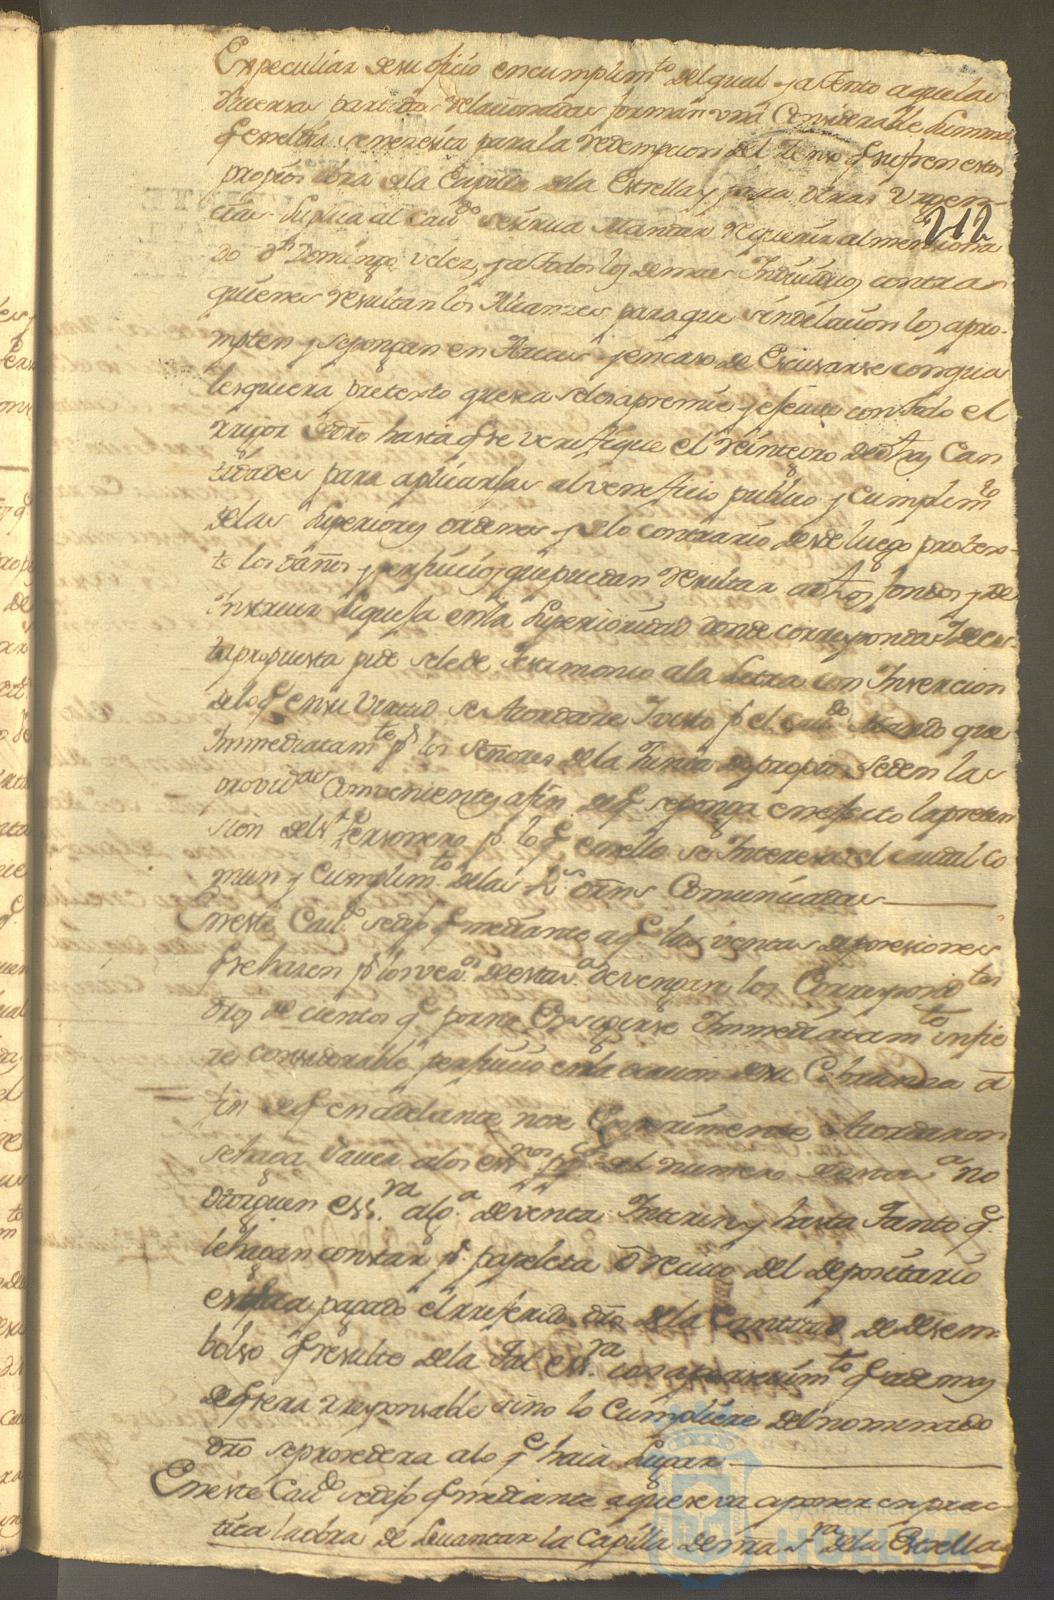 Es peculiar de su oficio en cumplim.to del qual y atento a que las
diversas partidas relacionadas forman una Considerable Summa
q. en el dia se nezesita para la redempcion del Zenso q. sufren estos
propios obra de la Capilla de la Estrella y para otras Urgen-
cias Suplica al Cav.do se sirva Mandar requerir al menciona
212
do d.n Domingo Velez, y a todos los demas Individuos contra
quienes resultan los Alcanzes para que sin dilacion los apro-
mpten y se pongan en Arcas y en caso de Escusarse con qua
lesquiera pretexto que sea se les apremie y execute con todo el
rigor dro hasta q. se verifique el reintegro de dhas Can
tidades para aplicarlas al veneficio publico y Cumplim.to
de las Superiores ordenes y de lo contrario desde luego protes-
to los daños y perjuicios que puedan resultar a dhos fondos y de
Instruir la quexa en la Superioridad donde corresponda y de es-
ta propuesta pide se le de testimonio a la Letra con Insercion
de lo q. en su Virtud se Acordare Y visto p.r el Cav.do Mando que
Immediatam.te p.r los Señores de la Junta de propios se den las
provid.as Combenientes a fin de q. se ponga en efecto la preten
sion del Personero p.r lo q. en ello se Interesa el caudal co
mun y Cumplim.to de las R.s ordns Comunicadas
En este Cav.do se dijo q. mediante a q. las ventas de posesiones
q. se hazen p.r los vez.os de esta v.a devengan los Correspond.tes
dros de cientos q. por no Exsigirse Immediatam.te infie
re considerable perjuicio en la ocacion de su Cobranza a
fin de q. en adelante no se Experimente Acordaron
se haga Saver a los ess.nos pp.cos del numero de esta v.a no
otorguen ess.ra alg.a de venta Interin y hasta Tanto q.e
le hagan constar p.r papeleta o recivo del depositario
estar pagado el referido dro de la Cantidad de desem
bolso q. resulte de la tal ess.ra con apersevim.to q. ademas
de q. sera responsable sino lo Cumpliere del nominado
dro se prozedera a lo q.e haia Lugar
En este Cav.do se dijo q. mediante a que se va a poner en prac-
tica la obra de Levantar la Capilla de nra S.ra de la Estrella
Ayuntamiento de
HUELVA